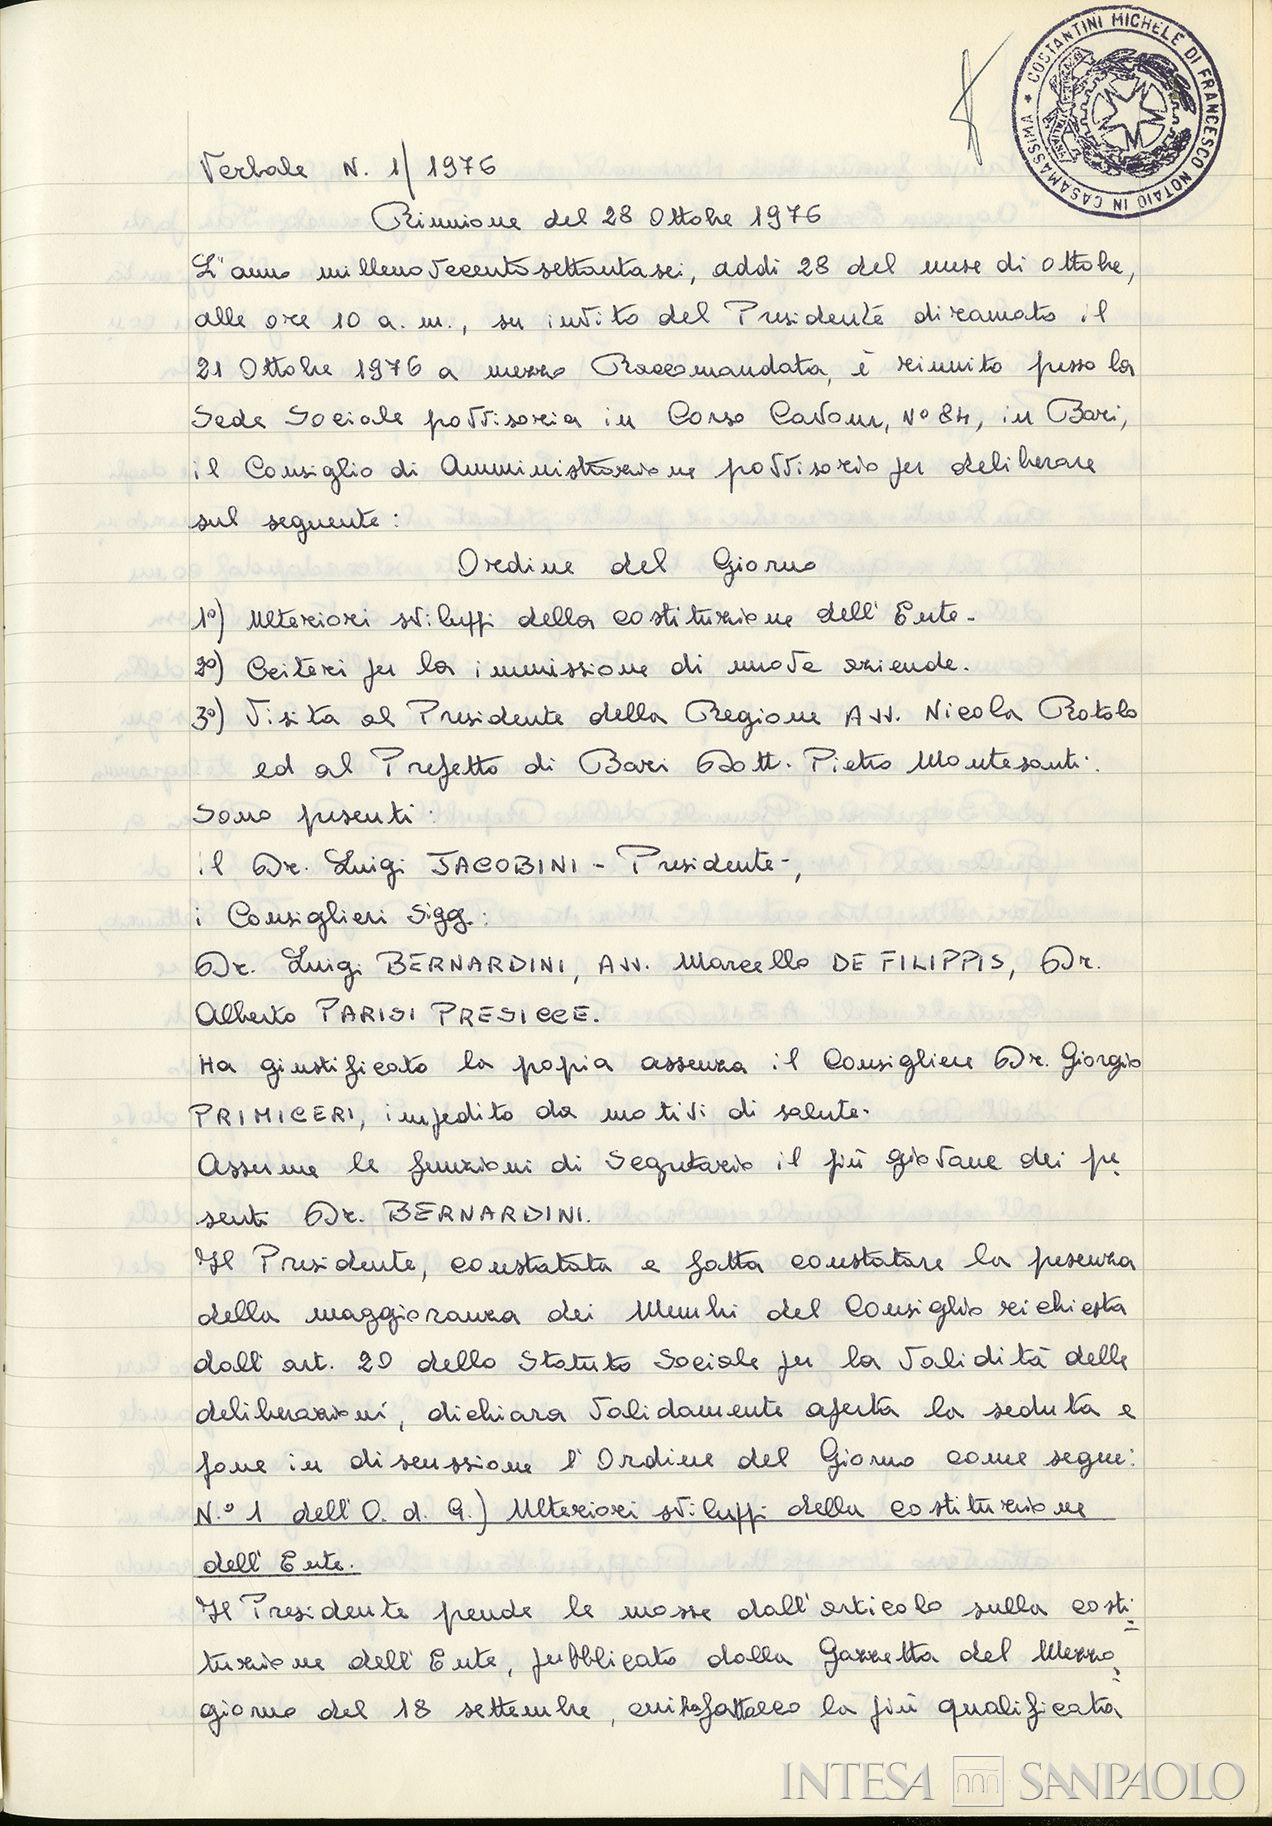 COSTANTINI MICHELE DI FRANCESCO NOTAIO IN CASAMASSIMA
Verbale N. 1/1976
Riunione del 28 Ottobre 1976
L'anno millenovecentosettantasei, addì 28 del mese di Ottobre,
alle ore 10 a.m., su invito del Presidente diramato il
21 Ottobre 1976 a mezzo Raccomandata, è riunito presso la
Sede Sociale provvisoria in Corso Cavour, N° 84, in Bari,
il Consiglio di Amministrazione provvisorio per deliberare
sul seguente:
Ordine del Giorno
1°) Ulteriori sviluppi della costituzione dell'Ente.
2°) Criteri per la immissione di nuove aziende.
3°) Visita al Presidente della Regione Avv. Nicola Rotolo
ed al Prefetto di Bari Dott. Pietro Montesanti.
Sono presenti:
il Dr. Luigi JACOBINI - Presidente -,
i Consiglieri Sigg.:
Dr. Luigi BERNARDINI, Avv. Marcello DE FILIPPIS, Dr.
Alberto PARISI PRESICCE.
Ha giustificato la propria assenza il Consigliere Dr. Giorgio
PRIMICERI, impedito da motivi di salute.
Assume le funzioni di Segretario il più giovane dei pre-
senti Dr. BERNARDINI.
Il Presidente, constatata e fatta constatare la presenza
della maggioranza dei Membri del Consiglio richiesta
dall'art. 20 dello Statuto Sociale per la validità delle
deliberazioni, dichiara validamente aperta la seduta e
pone in discussione l'Ordine del Giorno come segue:
N.° 1 dell'O. d. G.) Ulteriori sviluppi della costituzione
dell'Ente.
Il Presidente prende le mosse dall'articolo sulla costi=
tuzione dell'Ente, pubblicato dalla Gazzetta del Mezzo=
giorno del 18 settembre, cui ha fatto eco la più qualificata
INTESA SANPAOLO